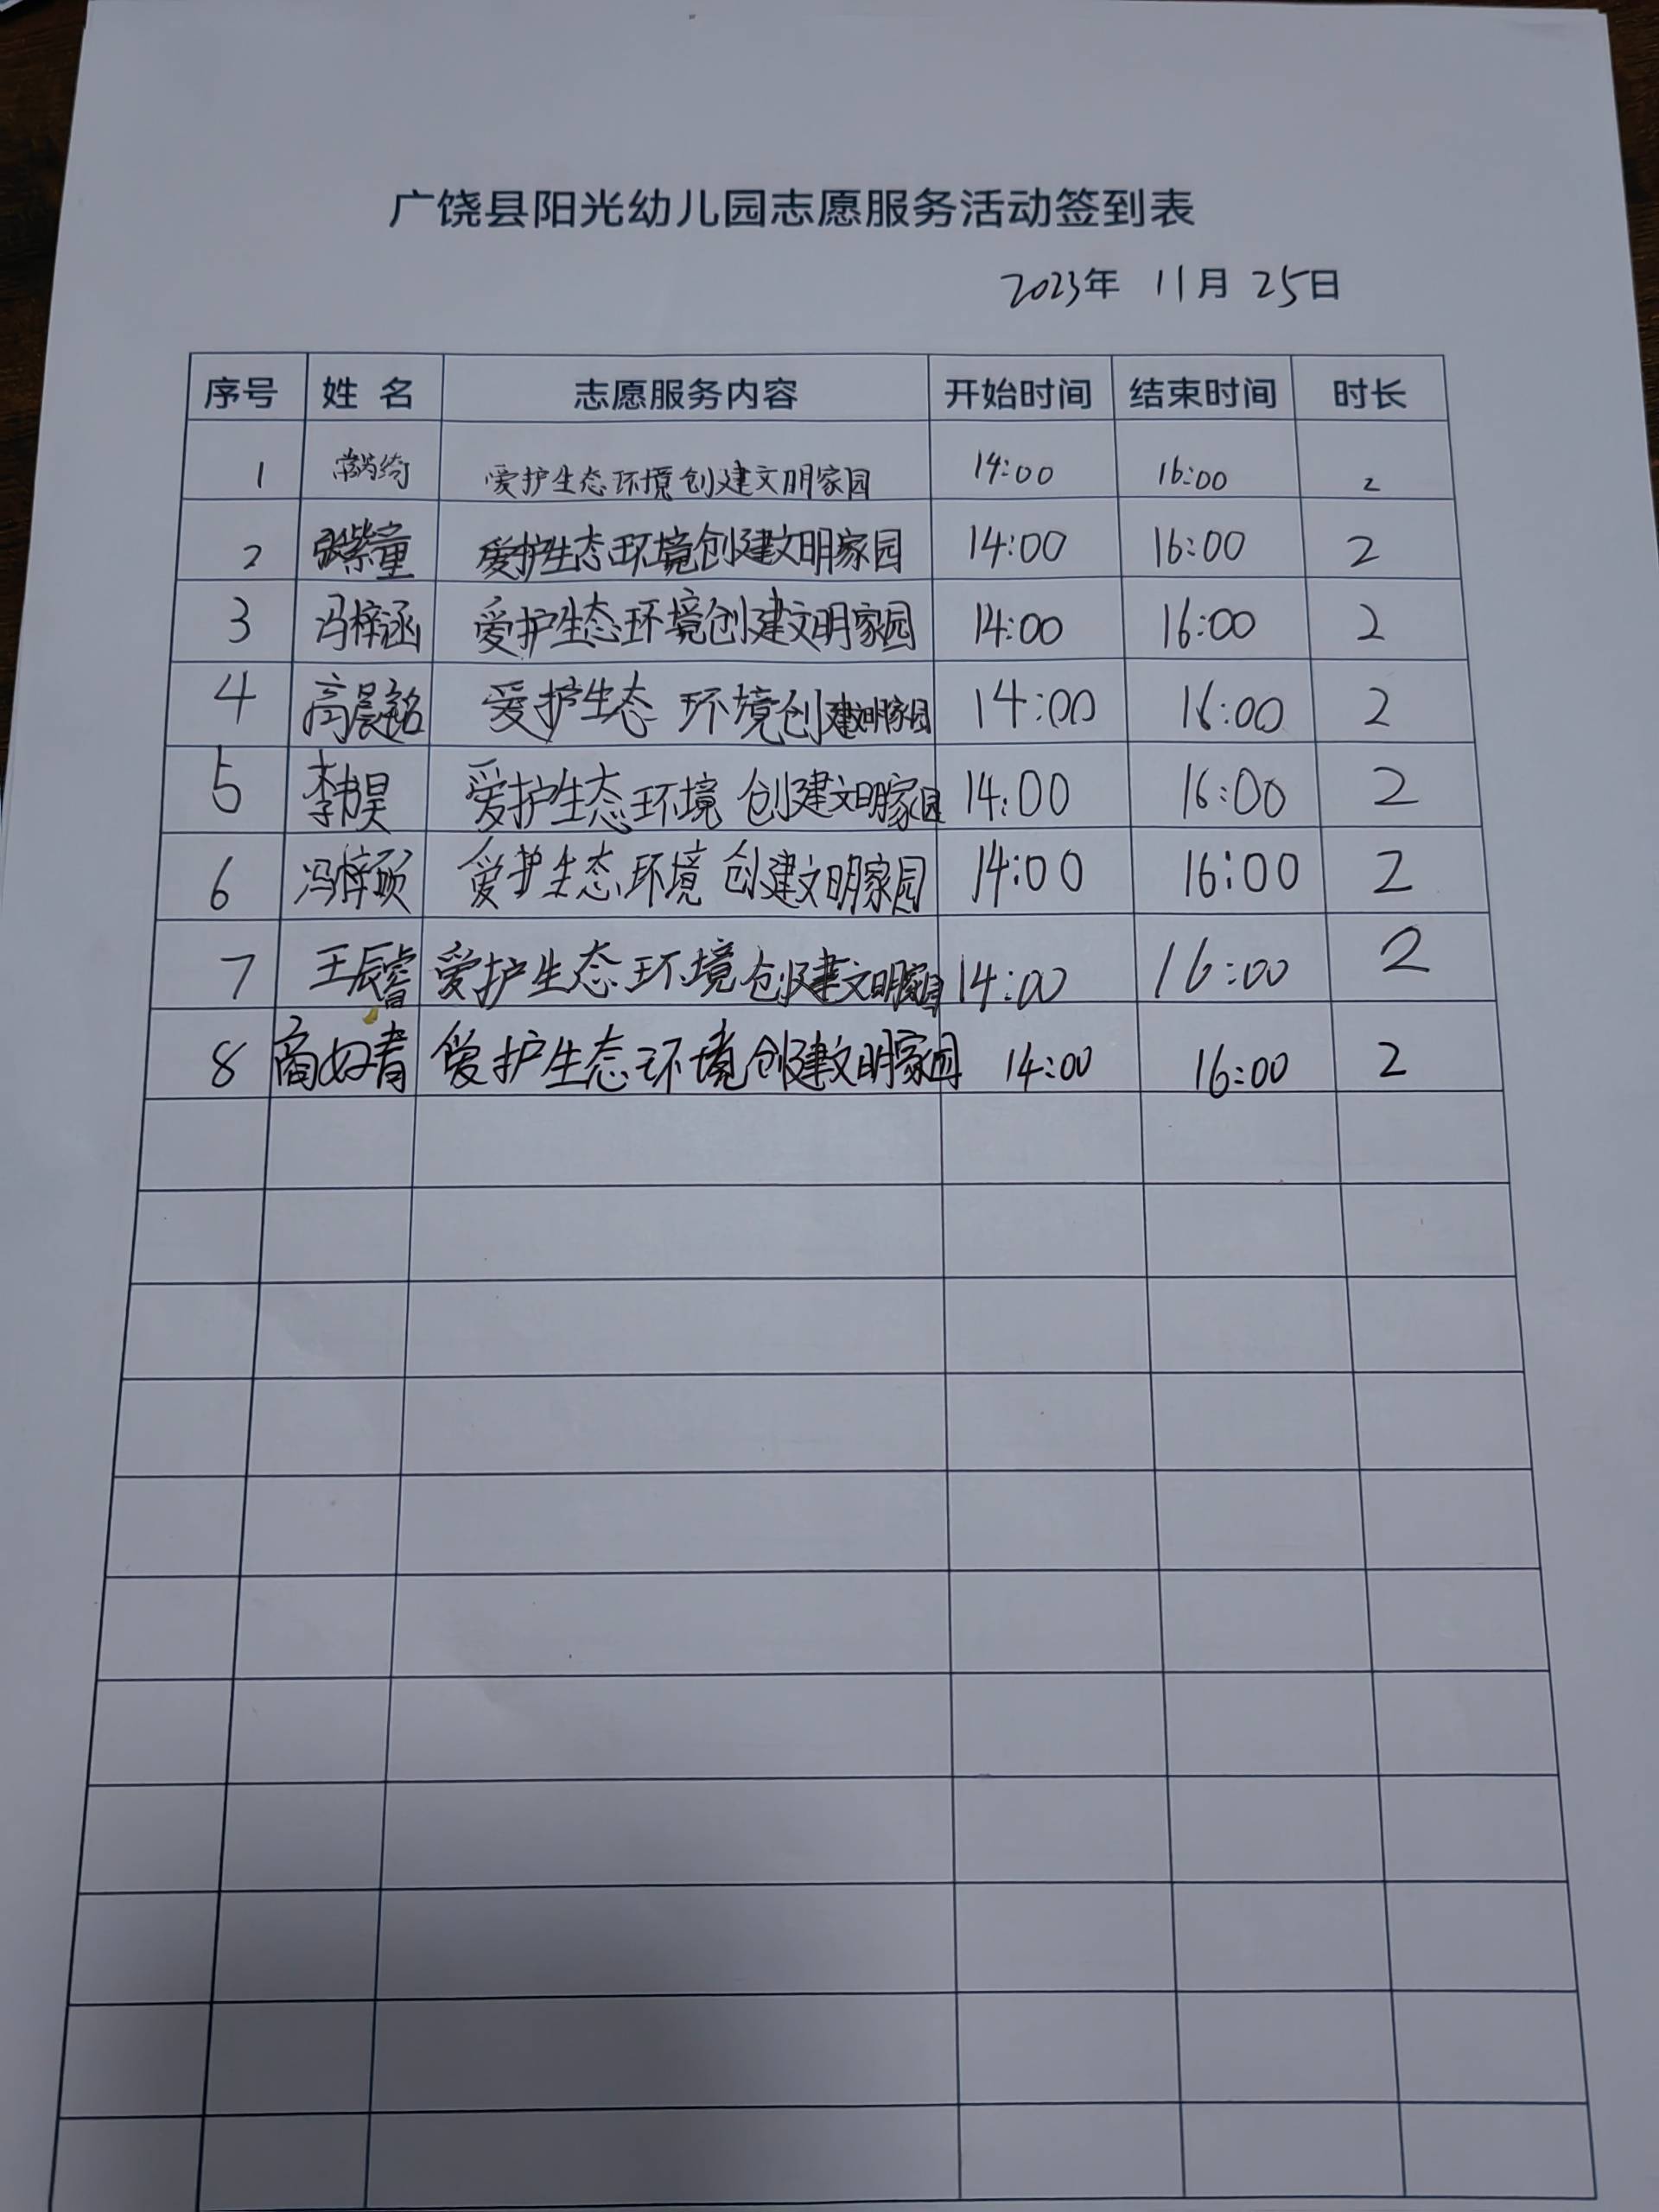 广饶县阳光幼儿园志愿服务活动签到表
2023年 11月 25日
序号 姓 名 志愿服务内容 开始时间 结束时间 时长
1 爱护生态环境创建文明家园 14:00 16:00 2
2 张紫童 爱护生态环境创建文明家园 14:00 16:00 2
3 冯梓涵 爱护生态环境创建文明家园 14:00 16:00 2
4 高晨铭 爱护生态环境创建文明家园 14:00 16:00 2
5 李书昊 爱护生态环境创建文明家园 14:00 16:00 2
6 冯梓硕 爱护生态环境创建文明家园 14:00 16:00 2
7 王辰睿 爱护生态环境创建文明家园 14:00 16:00 2
8 爱护生态环境创建文明家园 14:00 16:00 2